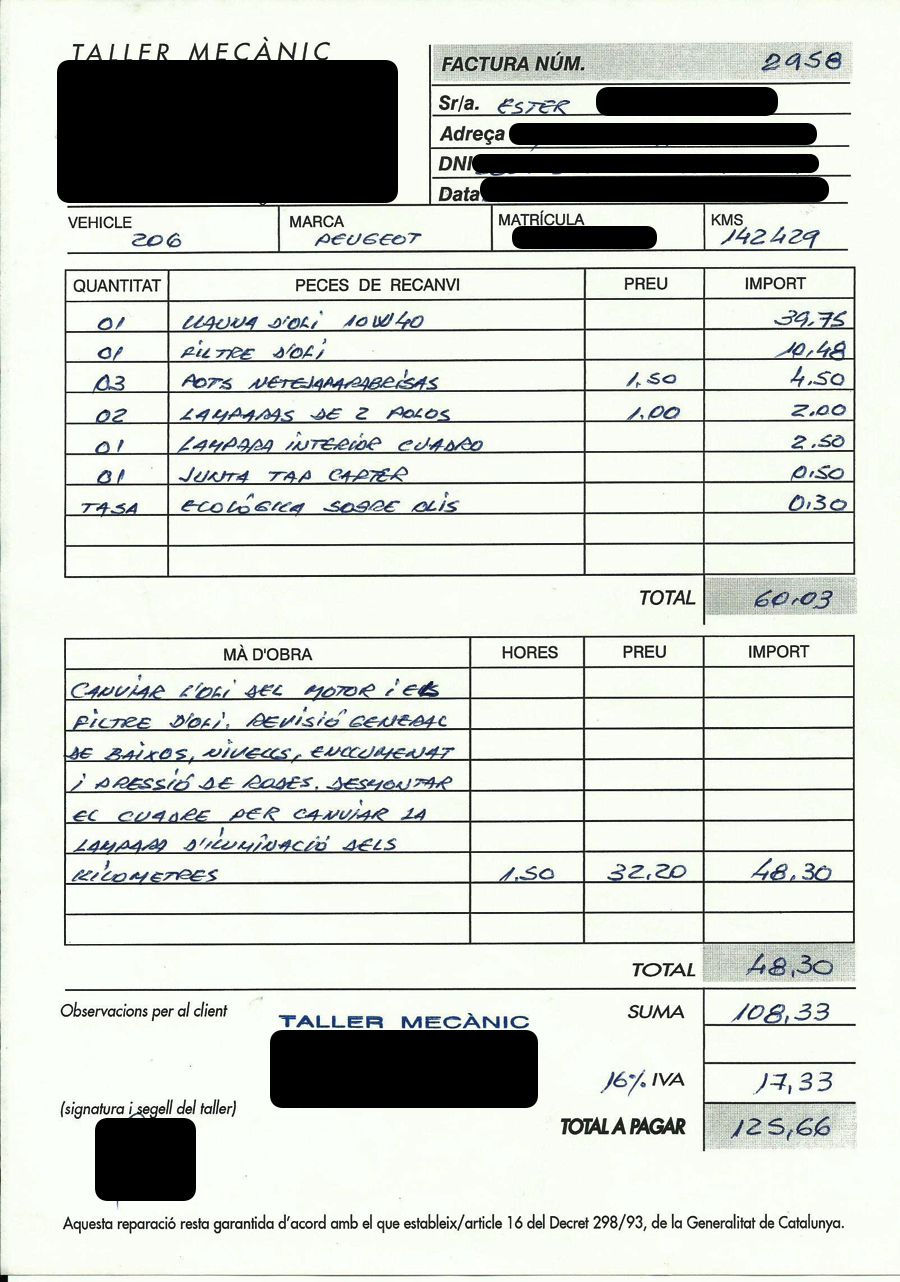 TALLER MECÀNIC
FACTURA NÚM. 2958
Sr/a. ESTER
Adreça
DNI
Data
VEHICLE MARCA MATRÍCULA KMS
206 PEUGEOT 142429
QUANTITAT PECES DE RECANVI PREU IMPORT
01 LLAUNA D'OLI 10W40 39,75
01 FILTRE D'OLI 10,48
03 POTS NETEJAPARABRISAS 1,50 4,50
02 LAMPARAS DE 2 POLOS 1,00 2,00
01 LAMPARA INTERIOR CUADRO 2,50
01 JUNTA TAP CARTER 0,50
TASA ECOLÓGICA SOBRE OLIS 0,30
TOTAL 60,03
MÀ D'OBRA HORES PREU IMPORT
CANVIAR L'OLI DEL MOTOR I ELS
FILTRE D'OLI. REVISIÓ GENERAL
DE BAIXOS, NIVELLS, ENLLUMENAT
I PRESSIÓ DE RODES. DESMONTAR
EL CUADRE PER CANVIAR LA
LAMPARA D'ILUMINACIÓ DELS
KILOMETRES 1.50 32,20 48,30
TOTAL 48,30
Observacions per al client
TALLER MECÀNIC
SUMA 108,33
16% IVA 17,33
(signatura i segell del taller)
TOTAL A PAGAR 125,66
Aquesta reparació resta garantida d'acord amb el que estableix/article 16 del Decret 298/93, de la Generalitat de Catalunya.